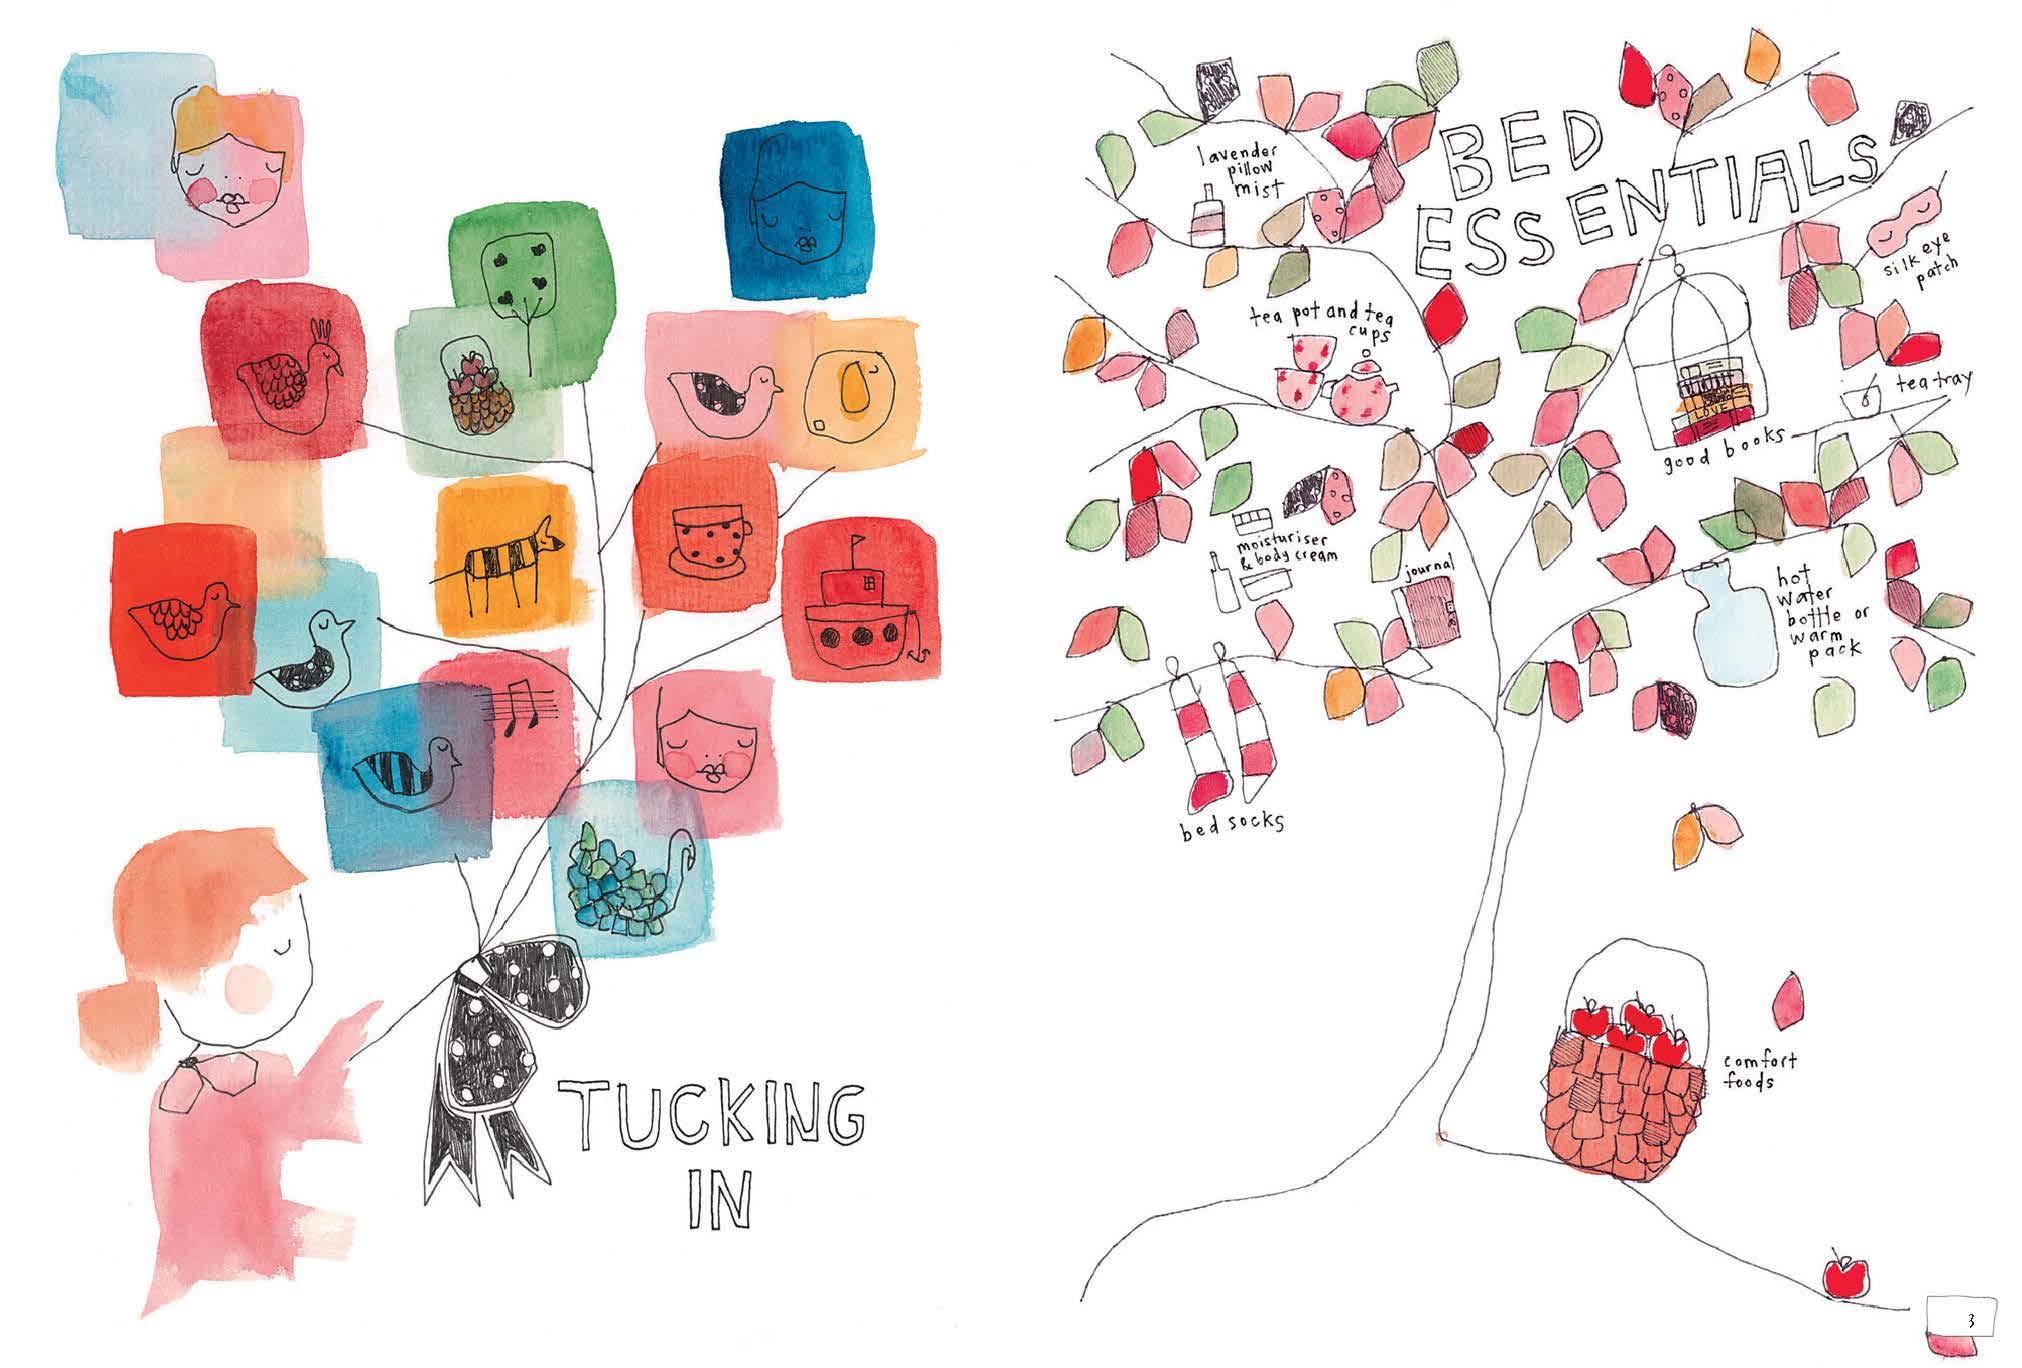 TUCKING
IN
BED
ESSENTIALS
lavender
pillow
mist
silk eye
patch
tea pot and tea
cups
tea tray
LOVE
good books
moisturiser
& body cream
journal
hot
water
bottle or
warm
pack
bed socks
comfort
foods
3